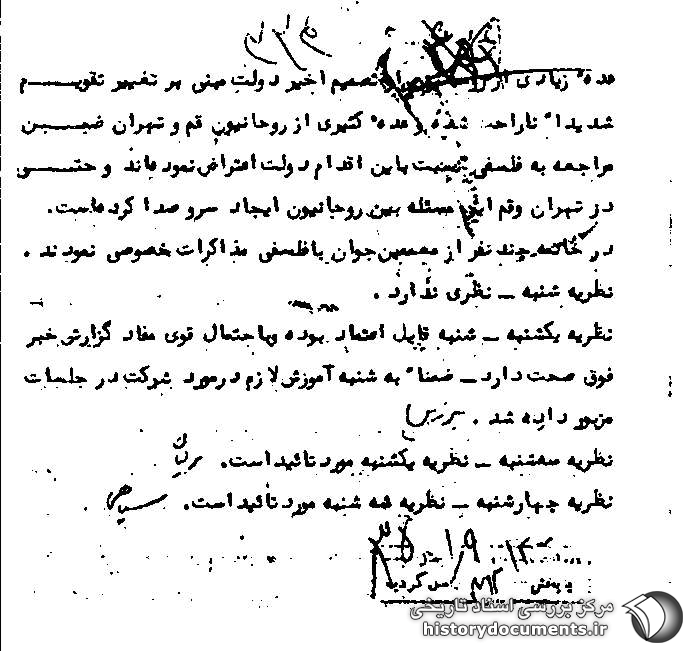 عده زیادی از تصمیم اخیر دولت مبنی بر تغییر تقویم
شدیدا" ناراحت شده و عده کثیری از روحانیون قم و تهران ضمن
مراجعه به فلسفی نسبت باین اقدام دولت اعتراض نموده‌اند و حتی
در تهران و قم این مسئله بین روحانیون ایجاد سر و صدا کرده‌است.
در خاتمه چند نفر از معممین جوان با فلسفی مذاکرات خصوصی نمودند.
نظریه شنبه ــ نظری ندارد.
نظریه یکشنبه ــ شنبه قابل اعتماد بوده و باحتمال قوی مفاد گزارش خبر
فوق صحت دارد ــ ضمنا" به شنبه آموزش لازم در مورد شرکت در جلسات
مزبور داده شد.
نظریه سه‌شنبه ــ نظریه یکشنبه مورد تائید است.
نظریه چهارشنبه ــ نظریه سه شنبه مورد تائید است. سپاهی
به بخش ۳۱۲ گردید
مرکز بررسی اسناد تاریخی
historydocuments.ir